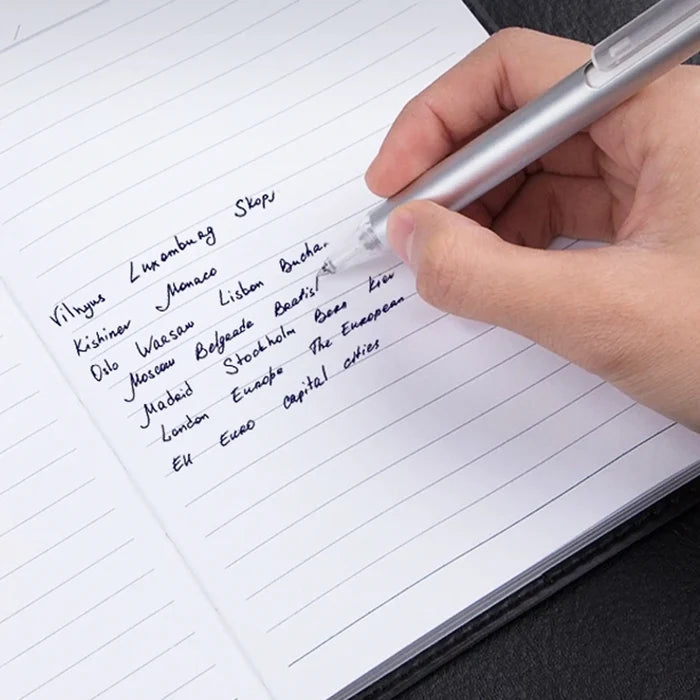 Vilnyus Luxemburg Skopj
Kishinev Monaco
Oslo Warsaw Lisbon Buchar
Moscow Belgrade Bratisl
Madrid Stockholm Bern Kiev
London Europe The European
EU Euro capital cities